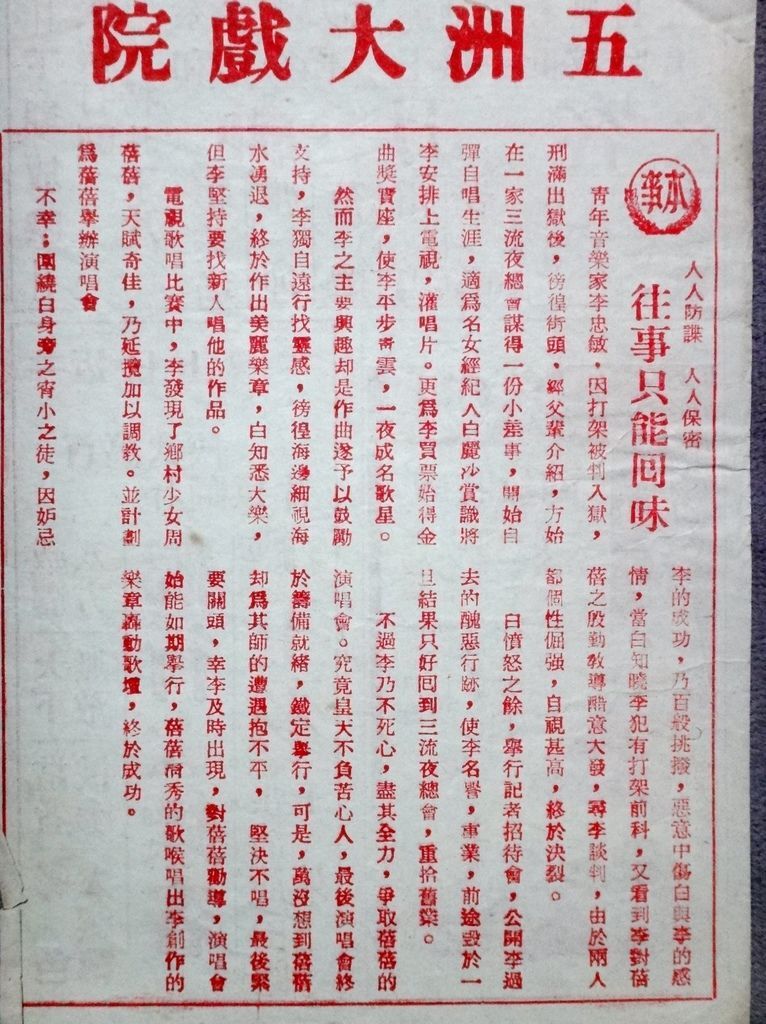 五洲大戲院
本事
人人防諜　人人保密
往事只能回味
青年音樂家李忠敏，因打架被判入獄，
刑滿出獄後，徬徨街頭，經父輩介紹，方始
在一家三流夜總會謀得一份小差事，開始自
彈自唱生涯，適為名女經紀人白麗沙賞識將
李安排上電視，灌唱片。更為李買票始得金
曲獎寶座，使李平步青雲，一夜成名歌星。
然而李之主要興趣却是作曲遂予以鼓勵
支持，李獨自遠行找靈感，徬徨海邊細視海
水湧退，終於作出美麗樂章，白知悉大樂，
但李堅持要找新人唱他的作品。
電視歌唱比賽中，李發現了鄉村少女周
蓓蓓，天賦奇佳，乃延攬加以調教。並計劃
為蓓蓓舉辦演唱會
不幸；圍繞白身旁之宵小之徒，因妒忌
李的成功，乃百般挑撥，惡意中傷白與李的感
情，當白知曉李犯有打架前科，又看到李對蓓
蓓之殷勤教導醋意大發，尋李談判，由於兩人
都個性倔強，自視甚高，終於決裂。
白憤怒之餘，舉行記者招待會，公開李過
去的醜惡行跡，使李名譽，事業，前途毀於一
旦結果只好回到三流夜總會，重拾舊業。
不過李乃不死心，盡其全力，爭取蓓蓓的
演唱會。究竟皇天不負苦心人，最後演唱會終
於籌備就緒，鐵定舉行，可是，萬沒想到蓓蓓
却為其師的遭遇抱不平，堅決不唱，最後緊
要關頭，幸李及時出現，對蓓蓓勸導，演唱會
始能如期舉行，蓓蓓清秀的歌喉唱出李創作的
樂章轟動歌壇，終於成功。